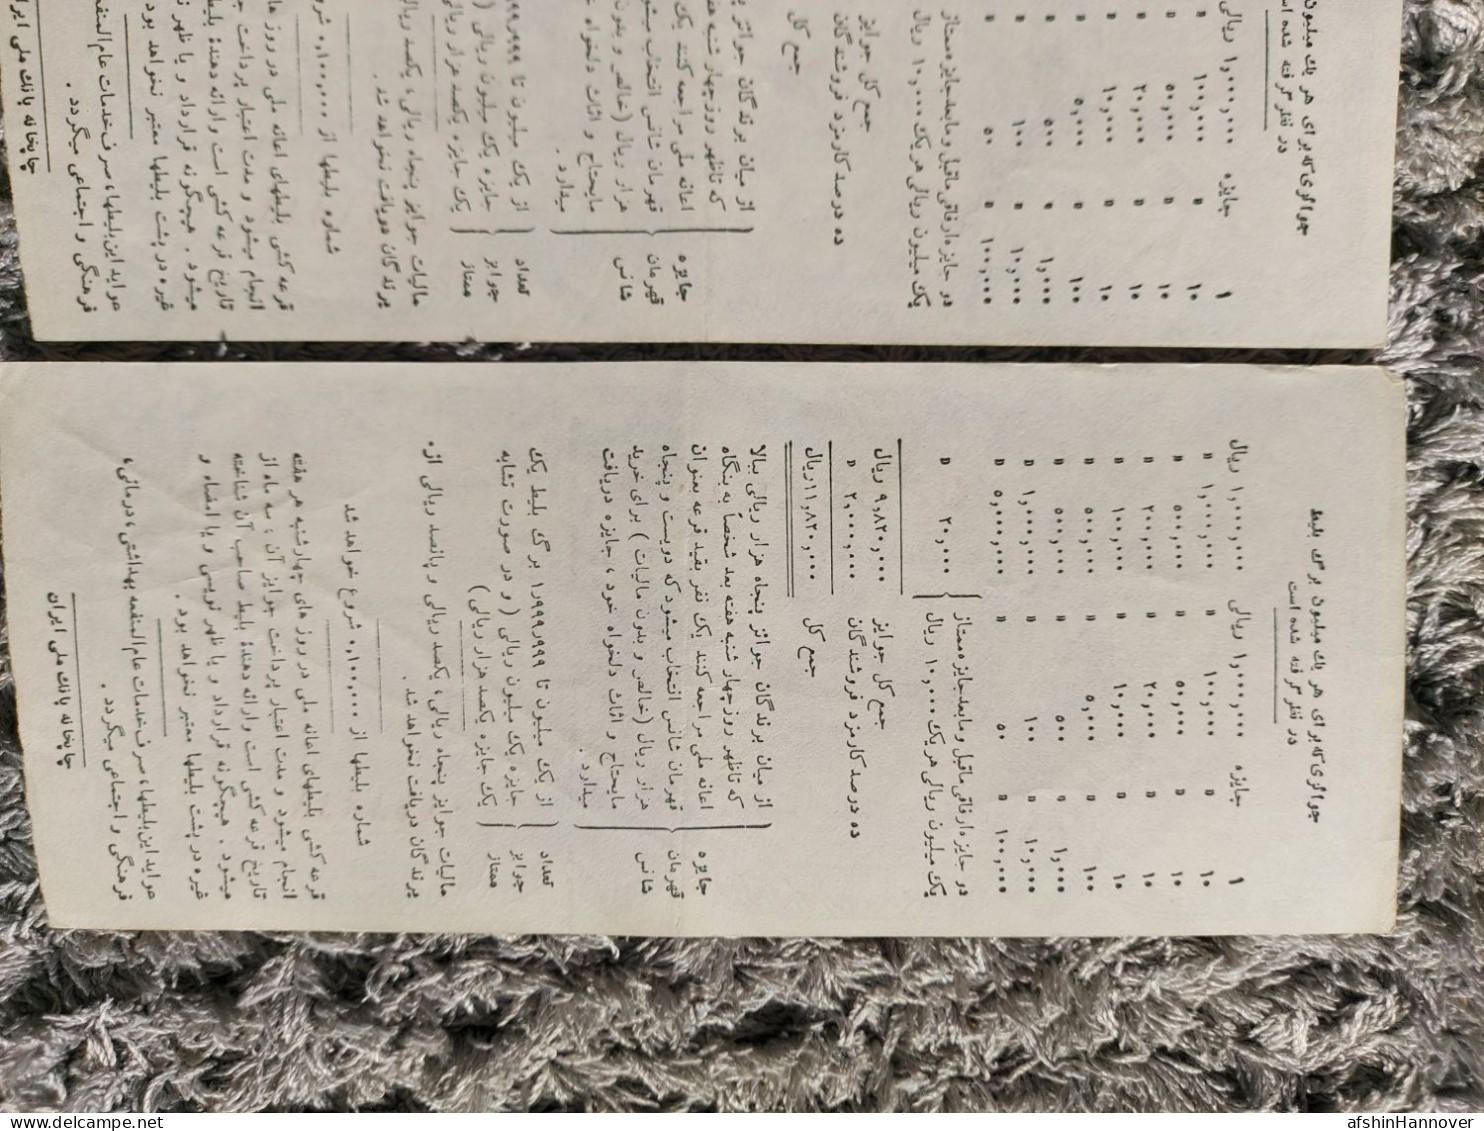 جوائزی که برای هر یک میلیون برگ بلیط
در نظر گرفته شده است
۱ جایزه ۱,۰۰۰,۰۰۰ ریالی ۱,۰۰۰,۰۰۰ ریال
۱۰ » ۱۰۰,۰۰۰ » ۱,۰۰۰,۰۰۰ »
۱۰ » ۵۰,۰۰۰ » ۵۰۰,۰۰۰ »
۱۰ » ۲۰,۰۰۰ » ۲۰۰,۰۰۰ »
۱۰ » ۱۰,۰۰۰ » ۱۰۰,۰۰۰ »
۱۰۰ » ۵,۰۰۰ » ۵۰۰,۰۰۰ »
۱,۰۰۰ » ۵۰۰ » ۵۰۰,۰۰۰ »
۱۰,۰۰۰ » ۱۰۰ » ۱,۰۰۰,۰۰۰ »
۱۰۰,۰۰۰ » ۵۰ » ۵,۰۰۰,۰۰۰ »
دو جایزه ارفاقی ماقبل و مابعد جایزه ممتاز
یک میلیون ریالی هر یک ۱۰,۰۰۰ ریال } ۲۰,۰۰۰ »
جمع کل جوایز ۹,۸۲۰,۰۰۰ ریال
ده درصد کارمزد فروشندگان ۲,۰۰۰,۰۰۰ »
جمع کل ۱۱,۸۲۰,۰۰۰ ریال
جایزه قهرمان شانس
از میان برندگان جوائز پنجاه هزار ریالی ببالا
که تا ظهر روز چهار شنبه هفته بعد شخصاً به بنگاه
اعانه ملی مراجعه کنند یک نفر بقید قرعه بعنوان
قهرمان شانس انتخاب میشود که دویست و پنجاه
هزار ریال (خالص و بدون مالیات) برای خرید
مایحتاج و اثاث دلخواه خود ، جایزه دریافت
میدارد .
تعداد جوایز ممتاز
از یک میلیون تا ۱٫۹۹۹٫۹۹۹ برگ بلیط یک
جایزه یک میلیون ریالی ( و در صورت تشابه
یک جایزه یکصد هزار ریالی )
مالیات جوایز پنجاه ریالی، یکصد ریالی و پانصد ریالی از
برندگان دریافت نخواهد شد.
شماره بلیطها از ۰,۱۰۰,۰۰۰ شروع خواهد شد
قرعه کشی بلیطهای اعانه ملی در روز های چهارشنبه هر هفته
انجام میشود و مدت اعتبار پرداخت جوایز آن ، سه ماه از
تاریخ قرعه کشی است و ارائه دهندهٔ بلیط صاحب آن شناخته
میشود . هیچگونه قرارداد و یا ظهر نویسی و یا امضاء و
غیره در پشت بلیطها معتبر نخواهد بود .
عواید این بلیطها، صرف خدمات عام المنفعه بهداشتی، درمانی،
فرهنگی و اجتماعی میگردد .
چاپخانه بانک ملی ایران
afshinHannover